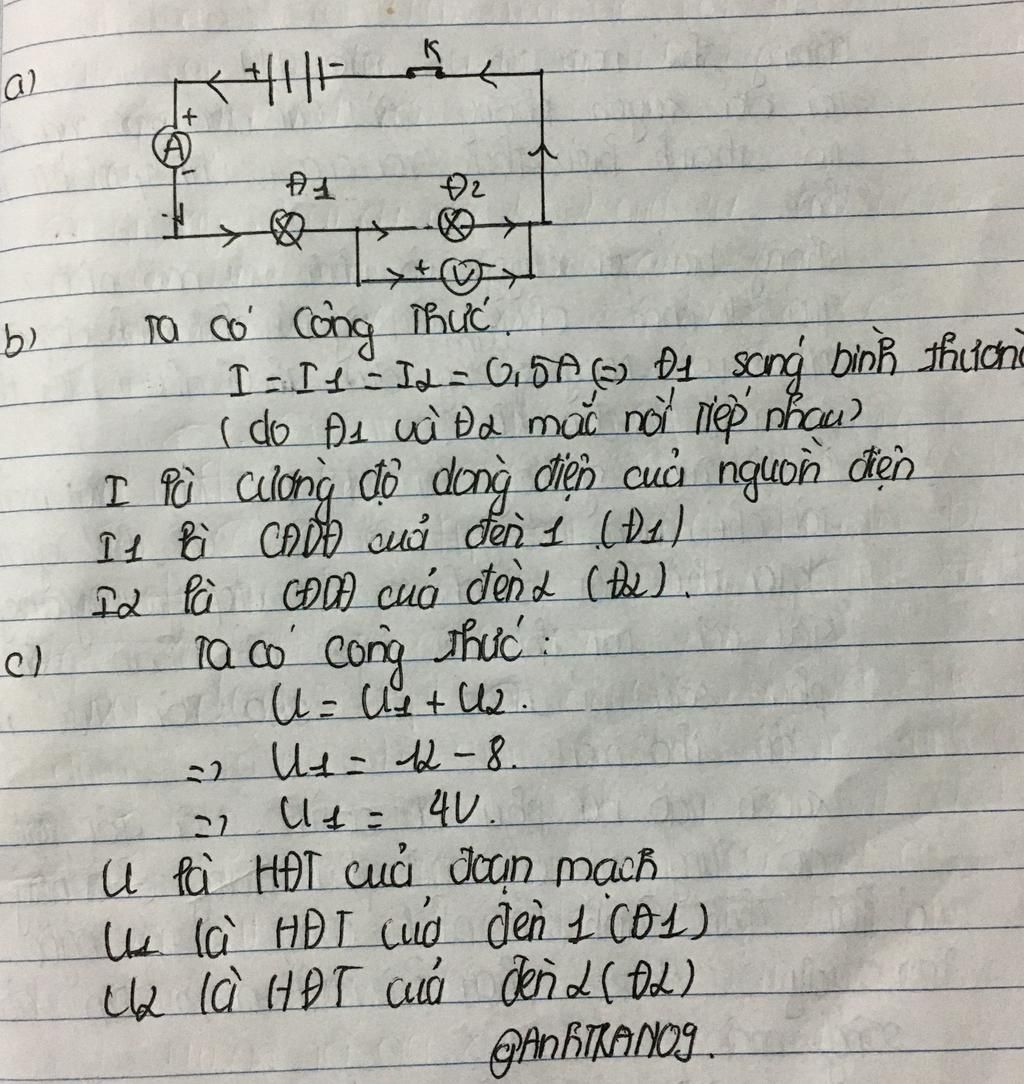 a)
+ - K
+
A
-
Đ1 Đ2
+ V -
b) Ta có công thức.
I = I1 = I2 = 0,5A (=) Đ1 sáng bình thường
(do Đ1 và Đ2 mắc nối tiếp nhau)
I là cường độ dòng điện của nguồn điện
I1 là CĐDĐ của đèn 1 (Đ1)
I2 là CĐDĐ của đèn 2 (Đ2).
c) Ta có công thức:
U = U1 + U2.
=> U1 = 12 - 8.
=> U1 = 4V.
U là HĐT của đoạn mạch
U1 là HĐT của đèn 1 (Đ1)
U2 là HĐT của đèn 2 (Đ2)
@AnhTRAN09.